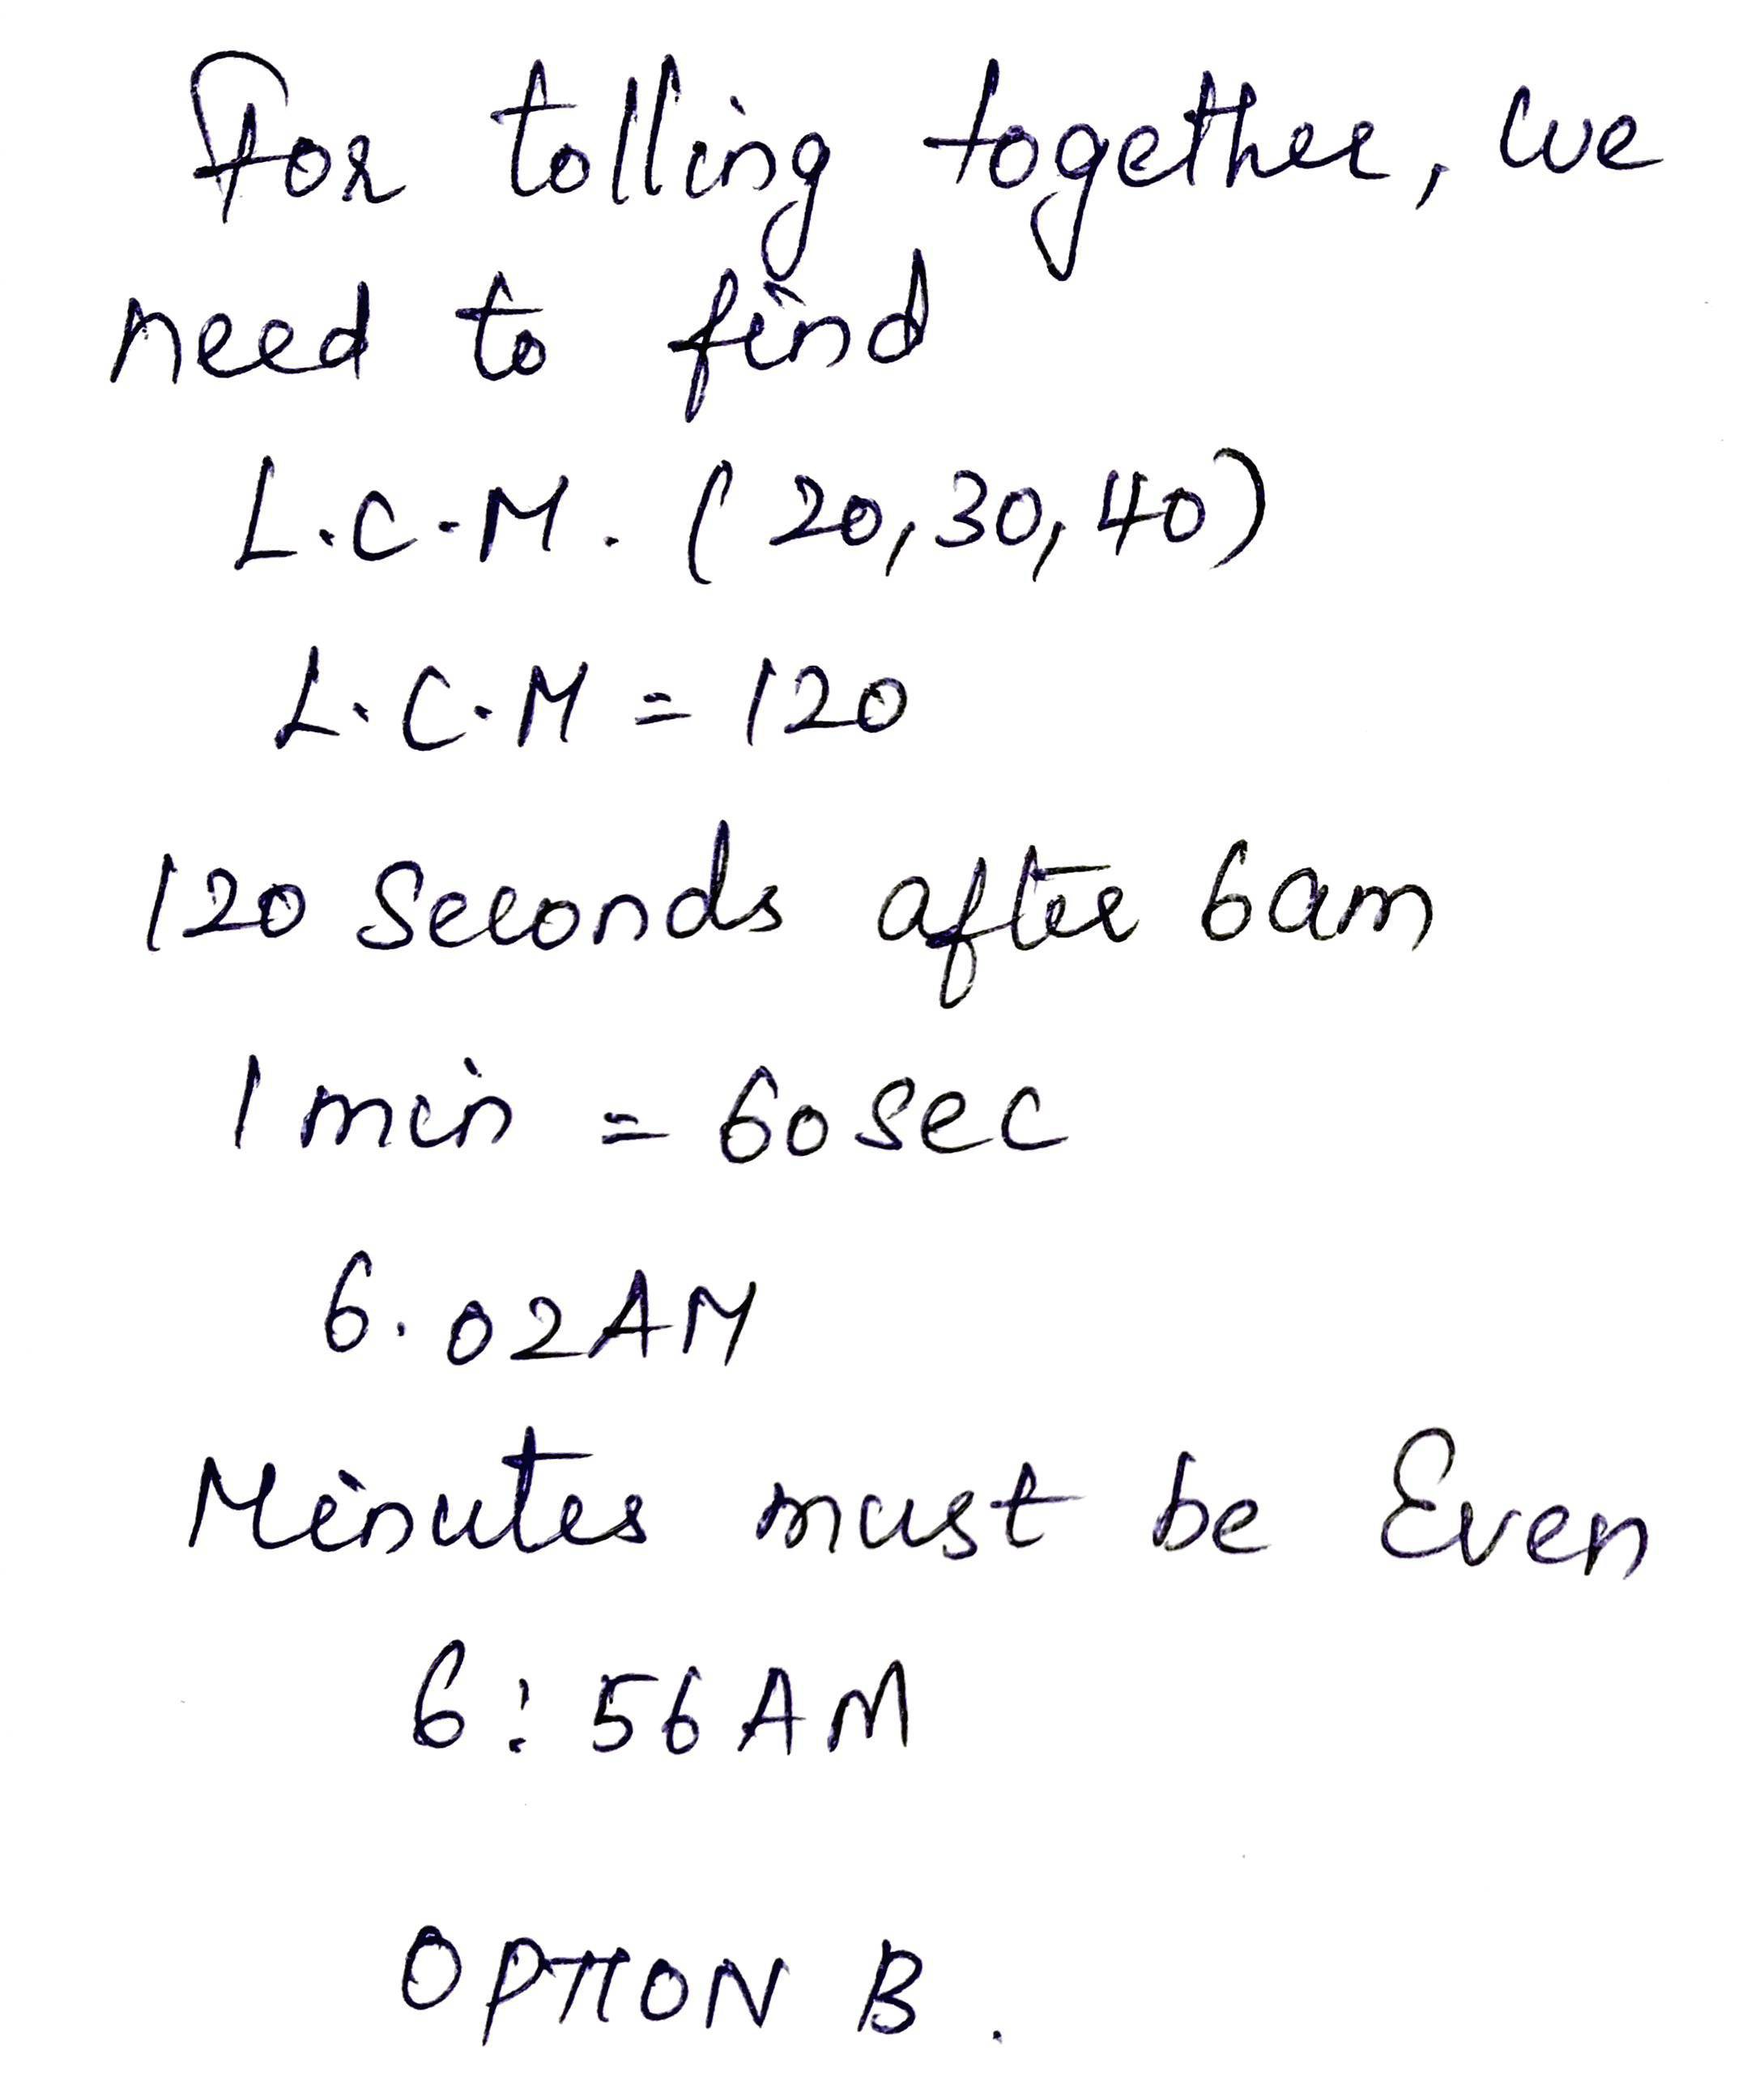 For tolling together, we
need to find
L.C.M. (20,30,40)
L.C.M = 120
120 Seconds after 6am
1 min = 60sec
6.02AM
Minutes must be Even
6:56 AM
OPTION B.